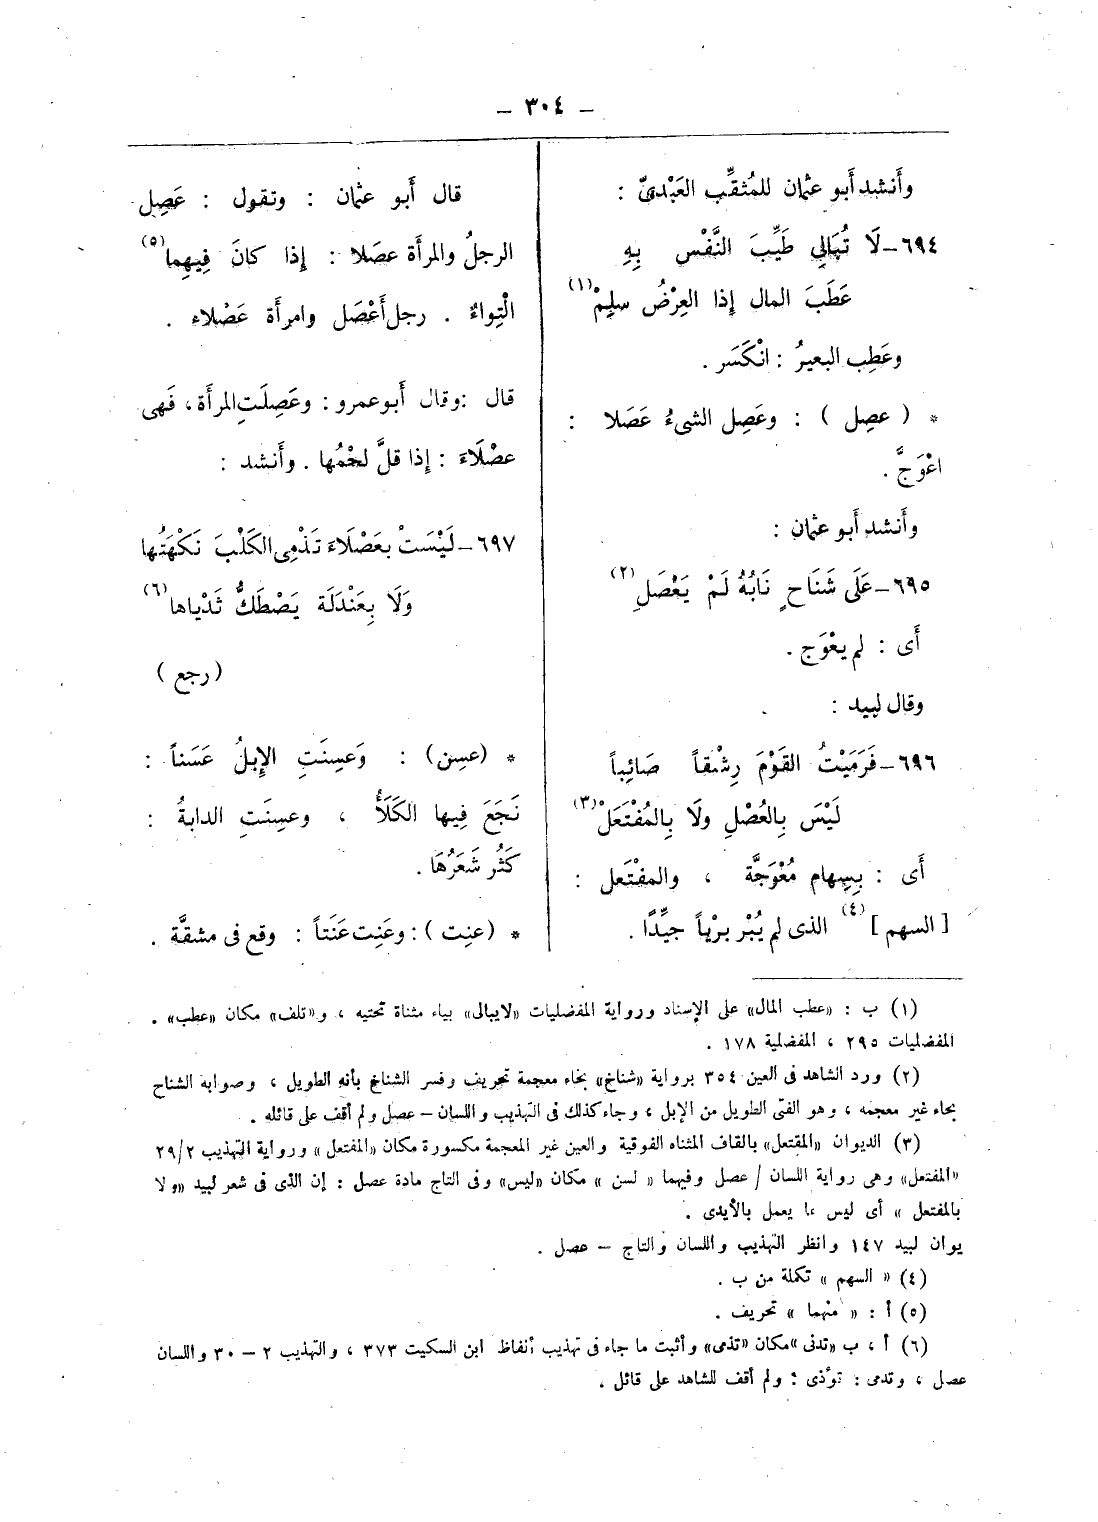 – ٣٠٤ –
وأَنشد أَبو عثمان للمُثقِّب العَبْدىّ :
٦٩٤ – لَا تُبَالِي طَيِّبَ النَّفْسِ بِهِ
عَطَبَ المال إِذا العِرْضُ سلِيمْ (١)
وعَطِب البعيرُ : انْكَسَر .
* ( عصِل ) : وعَصِل الشىءُ عَصَلا :
اعْوَجَّ .
وأَنشد أَبو عثمان :
٦٩٥ – عَلَى شَنَاحٍ نَابُهُ لَمْ يَعْصَلِ (٢)
أَى : لم يعْوَج .
وقال لبيد :
٦٩٦ – فَرَمَيْتُ القَوْمَ رِشْقاً صَائِباً
لَيْسَ بِالعُصْلِ ولَا بِالمُفْتَعَلْ (٣)
أَى : بِسِهام مُعْوَجَّة ، والمفْتَعل :
[ السهم ] (٤) الذى لم يُبْر برْياً جيِّدًا .
قال أَبو عثمان : وتقول : عَصِل
الرجلُ والمرأَة عصَلا : إِذا كانَ فِيهِما (٥)
الْتِواءٌ . رجل أَعْصَل وامرأَة عَصْلاء .
قال : وقال أَبو عمرو : وعَصِلَتِ المرأَة ، فَهى
عصْلَاءَ : إِذا قلَّ لحْمُها . وأَنشد :
٦٩٧ – لَيْسَتْ بِعَصْلَاءَ تَذْمِى الكَلْبَ نَكْهَتُها
وَلَا بِعَنْدَلَة يَصْطَكُّ ثَدْياها (٦)
( رجع )
* (عسِن) : وَعسِنَتِ الإِبلُ عَسَناً :
نَجَعَ فِيها الكَلَأُ ، وعسِنَتِ الدابةُ :
كَثُر شَعَرُهَا .
* (عنِت ) : وعَنِت عَنَتاً : وقع فى مشقَّة .
(١) ب : «عطب المال» على الإسناد ورواية المفضليات «لايبالى» بياء مثناة تحتيه ، و«تلف» مكان «عطب» .
المفضليات ٢٩٥ ، المفضلية ١٧٨ .
(٢) ورد الشاهد فى العين ٣٥٤ برواية «شناخ» بخاء معجمة تحريف وفسر الشناخ بأنه الطويل ، وصوابه الشناح
بحاء غير معجمه ، وهو الفتى الطويل من الإبل ، وجاء كذلك فى التهذيب واللسان – عصل ولم أقف على قائله .
(٣) الديوان «المقتعل» بالقاف المثناه الفوقية والعين غير المعجمة مكسورة مكان «المفتعل» ورواية التهذيب ٢/٢٩
«المفتعل» وهى رواية اللسان / عصل وفيهما « لسن » مكان «ليس» وفى التاج مادة عصل : إن الذى فى شعر لبيد «ولا
بالمفتعل » أى ليس مما يعمل بالأيدى .
يوان لبيد ١٤٧ وانظر التهذيب واللسان والتاج – عصل .
(٤) « السهم » تكملة من ب .
(٥) أ : « منهما » تحريف .
(٦) أ ، ب «تدنى» مكان «تذمى» وأثبت ما جاء فى تهذيب ألفاظ ابن السكيت ٣٧٣ ، والتهذيب ٢ – ٣٠ واللسان
عصل ، وتدمى : تؤذى ؛ ولم أقف للشاهد على قائل .